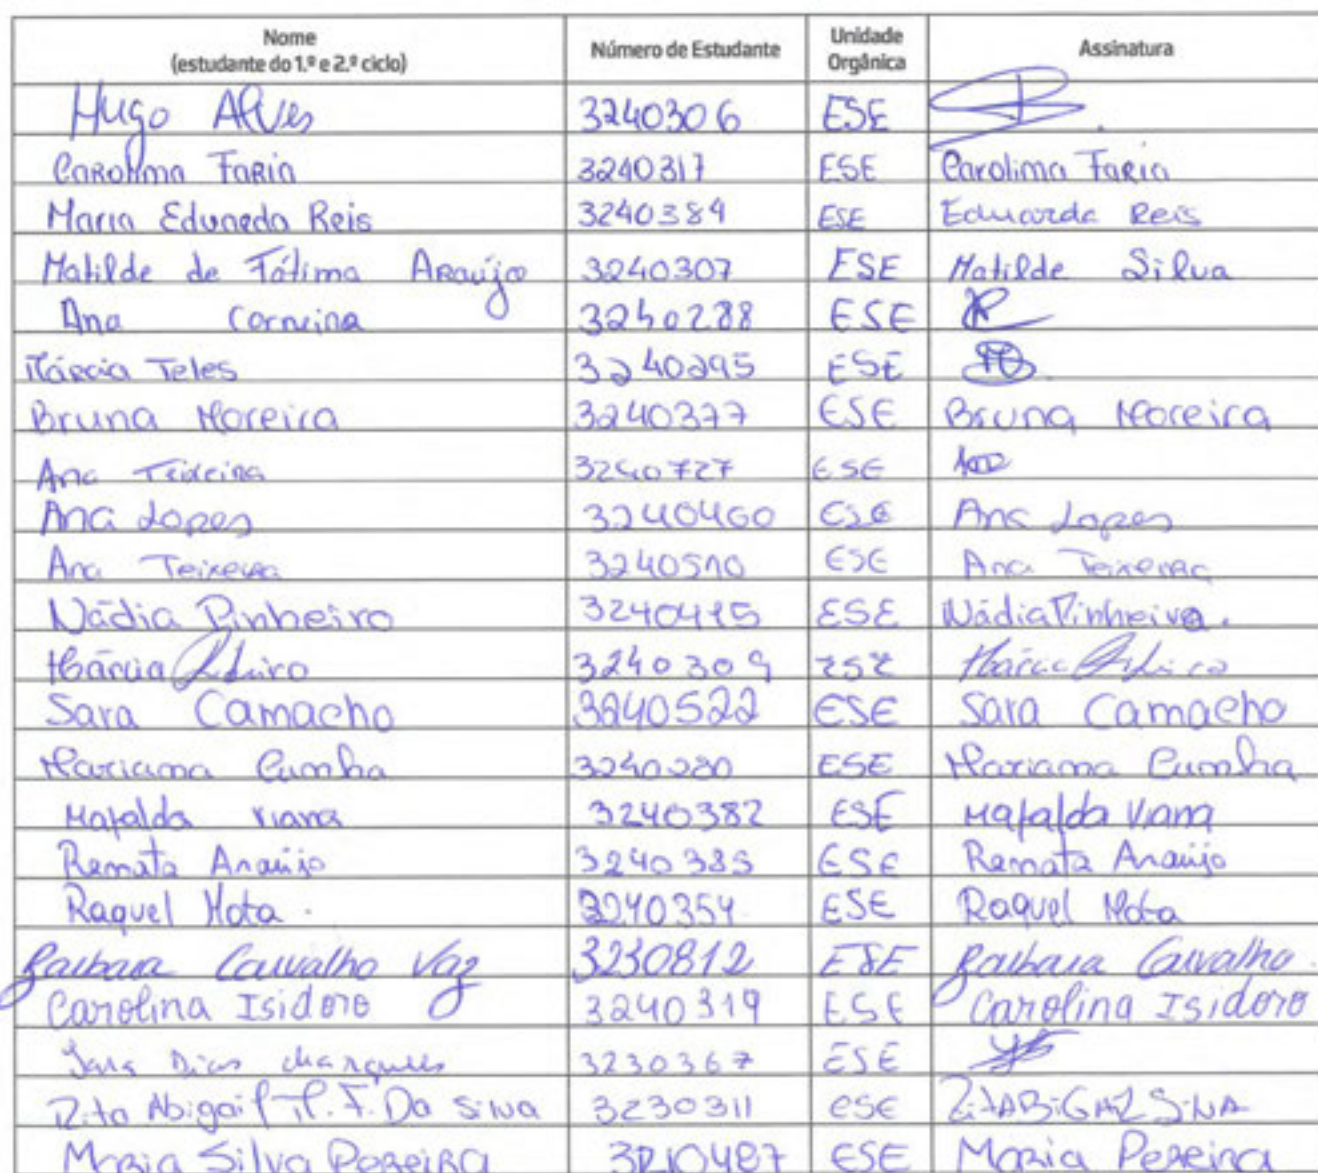 Nome Número de Estudante Unidade Assinatura
(estudante do 1.º e 2.º ciclo) Orgânica
Hugo Alves 3240306 ESE
Carolina Faria 3240317 ESE Carolina Faria
Maria Eduarda Reis 3240384 ESE Eduarda Reis
Matilde de Fátima Araújo 3240307 ESE Matilde Silva
Ana 3240288 ESE
Márcia Teles 3240295 ESE
Bruna Moreira 3240377 ESE Bruna Moreira
Ana Teixeira 3240727 ESE
Ana Lopes 3240460 ESE Ana Lopes
Ana Teixeira 3240510 ESE Ana Teixeira
Nádia Pinheiro ESE Nádia Pinheiro.
Márcia Ribeiro 3240309 ESE Márcia Ribeiro
Sara Camacho 3240522 ESE Sara Camacho
Mariana Cunha 3240280 ESE Mariana Cunha
Mafalda Viana 3240382 ESE Mafalda Viana
Renata Araújo 3240385 ESE Renata Araújo
Raquel Mota. 3240354 ESE Raquel Mota
Barbara Carvalho Vaz 3230812 ESE Barbara Carvalho.
Carolina Isidoro 3240319 ESE Carolina Isidoro
Dias Marques 3230367 ESE
Rita Abigail P. F. Da Silva 3230311 ESE RITA ABIGAIL SILVA
Maria Silva Pereira ESE Maria Pereira